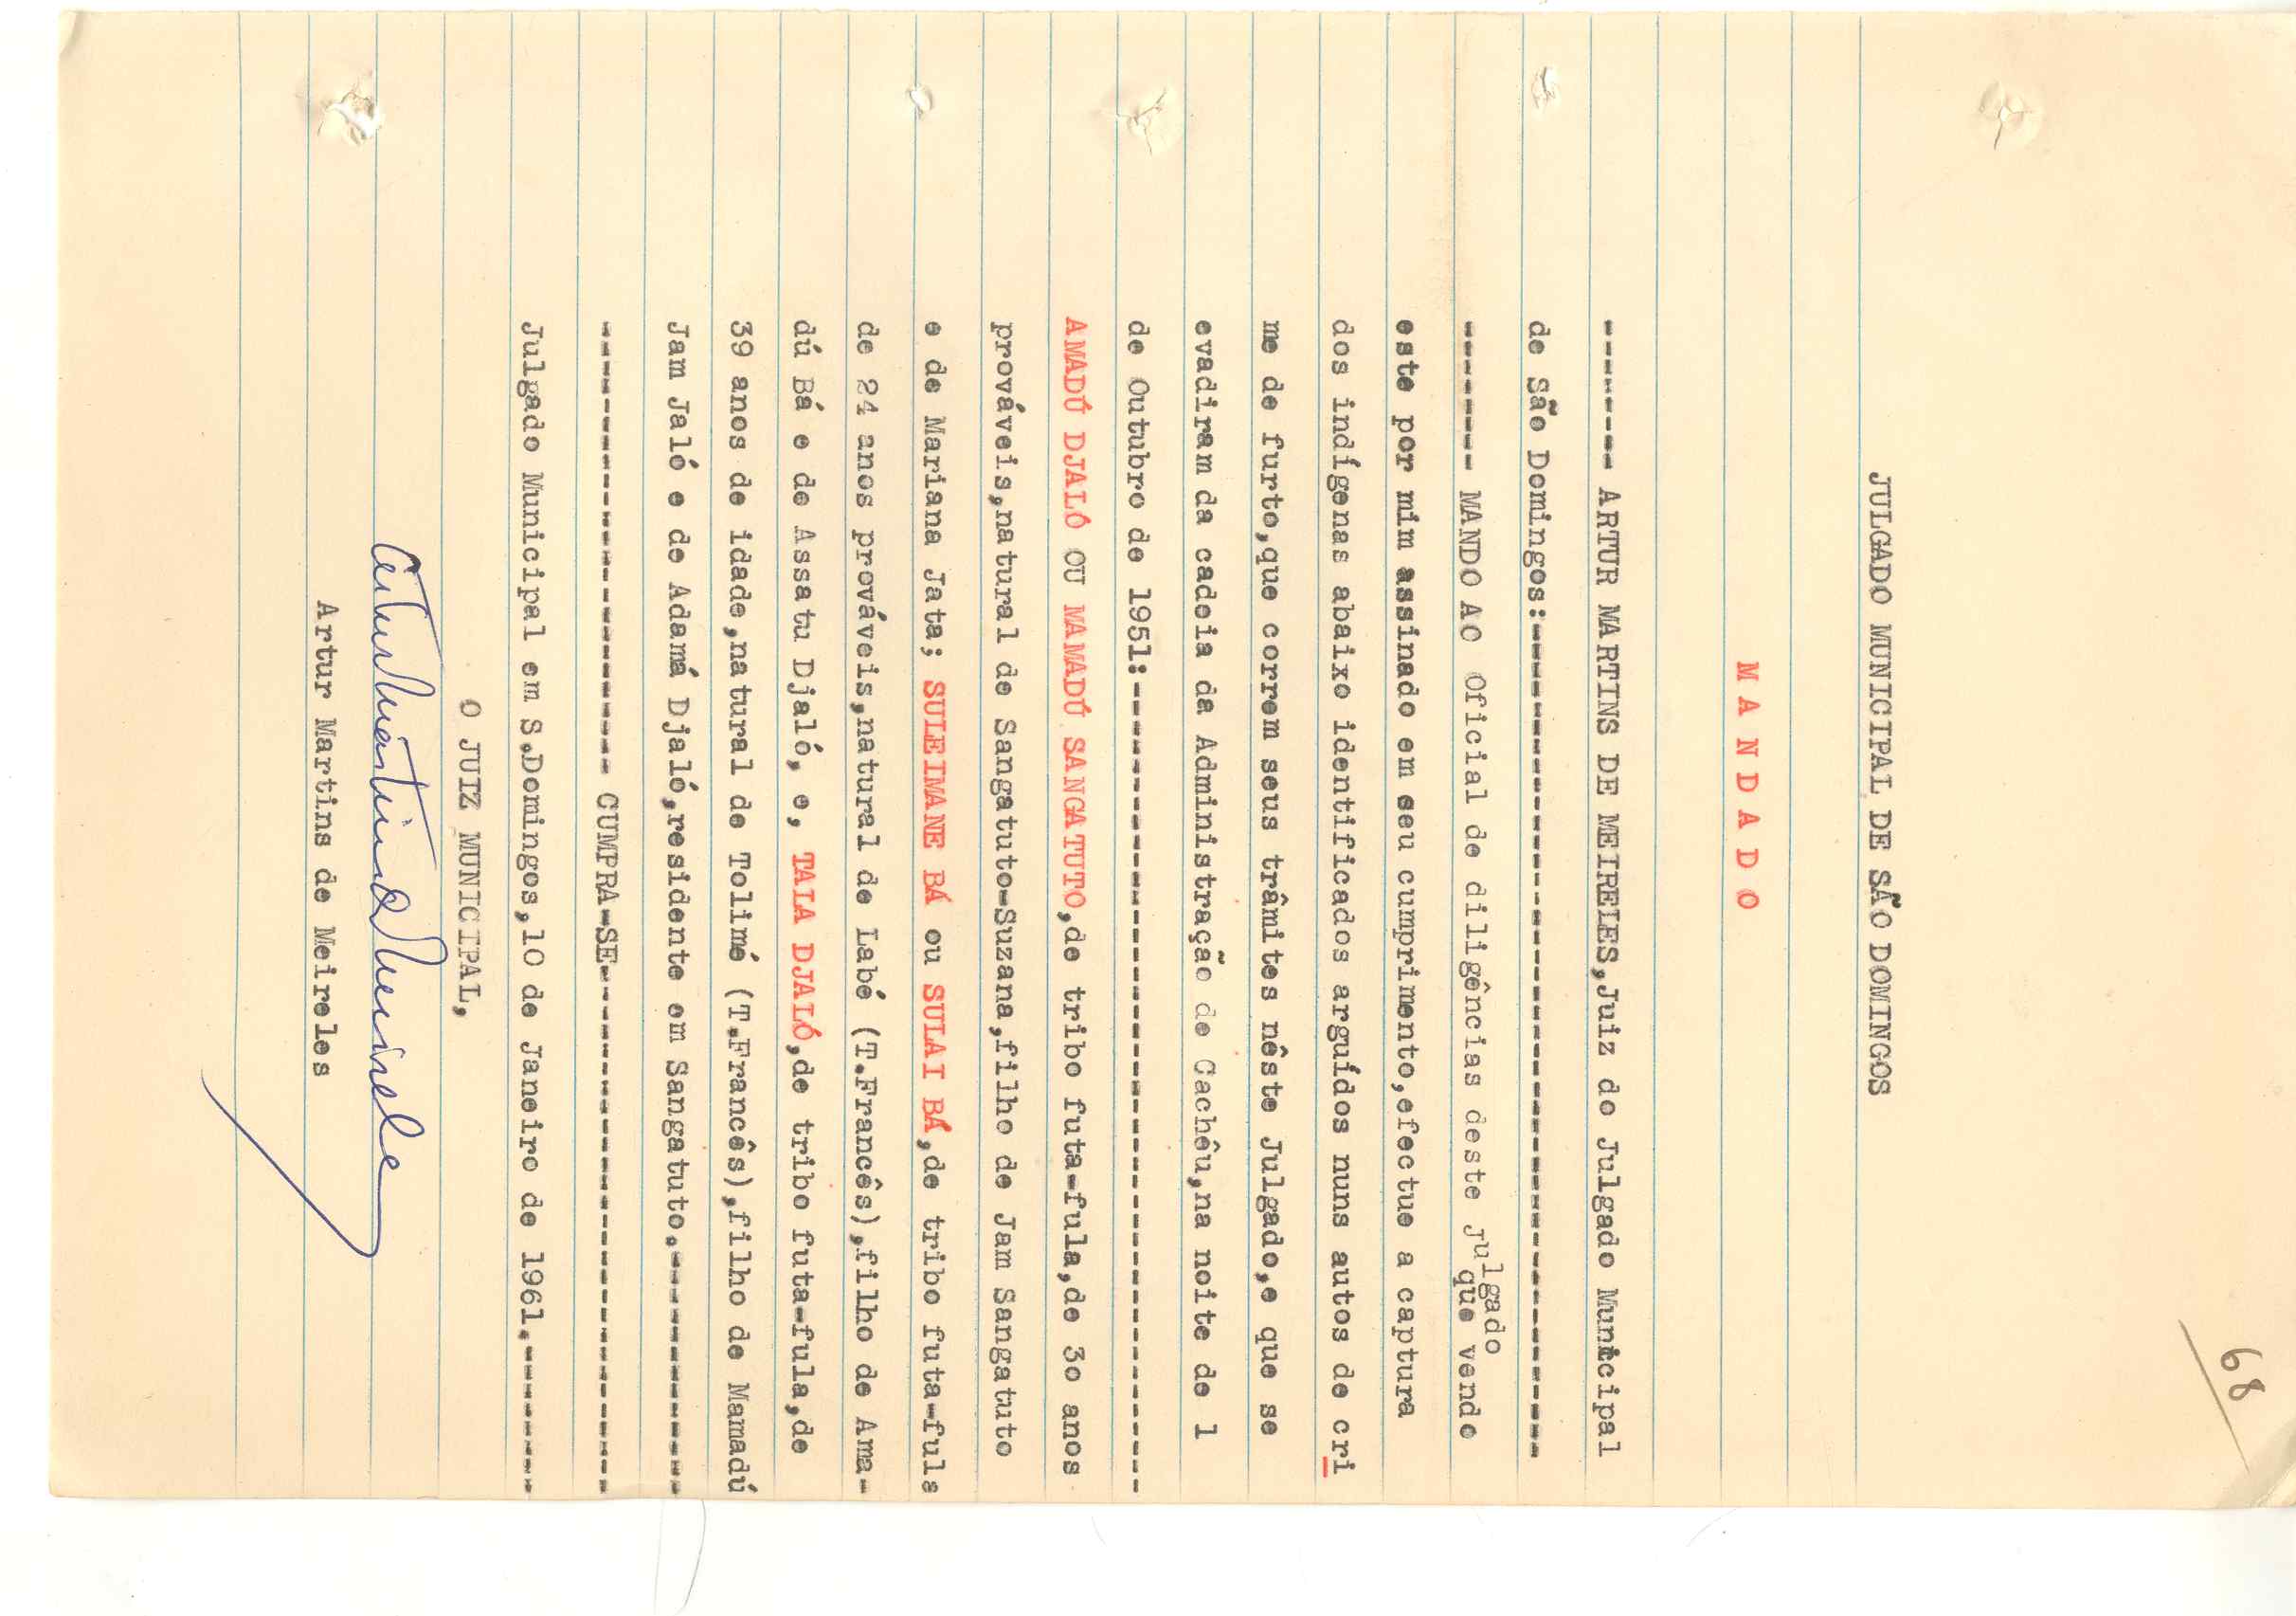 68
JULGADO MUNICIPAL DE SÃO DOMINGOS
M A N D A D O
------- ARTUR MARTINS DE MEIRELES,Juiz do Julgado Municipal
de São Domingos:--------------------------------------------
------- MANDO AO Oficial de diligências deste Julgado que vendo
este por mim assinado em seu cumprimento,efectue a captura
dos indígenas abaixo identificados arguídos nuns autos de cri
me de furto,que correm seus trâmites nêste Julgado,e que se
evadiram da cadeia da Administração de Cachêu,na noite de 1
de Outubro de 1951:-----------------------------------------
AMADÚ DJALÓ OU MAMADÚ SANGATUTO,de tribo futa-fula,de 3o anos
prováveis,natural de Sangatuto-Suzana,filho de Jam Sangatuto
e de Mariana Jata; SULEIMANE BÁ ou SULAI BÁ,de tribo futa-fuls
de 24 anos prováveis,natural de Labé (T.Francês),filho de Ama-
dú Bá e de Assatu Djaló, e, TALA DJALÓ,de tribo futa-fula,de
39 anos de idade,natural de Tolimé (T.Francês),filho de Mamadú
Jam Jaló e de Adamá Djaló,residente em Sangatuto.-------------
----------------------- CUMPRA-SE-----------------------------
Julgado Municipal em S.Domingos,10 de Janeiro de 1961.--------
O JUIZ MUNICIPAL,
Artur Martins de Meireles
Artur Martins de Meireles